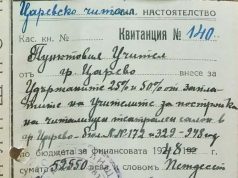 Царевско читал. НАСТОЯТЕЛСТВО
Кас. кн. № Квитанция № 140
Пунктовия Учител
гр. Царево внесе за
Удържаните 25% и 50% от запла-
тите на учителите за постройка
на читалищен театрален салон в
гр. Царево - № № 172 и 329 - 948 год
по бюджета за финансовата 1948 192 г.
сумата 52550 лева словом Петдесет